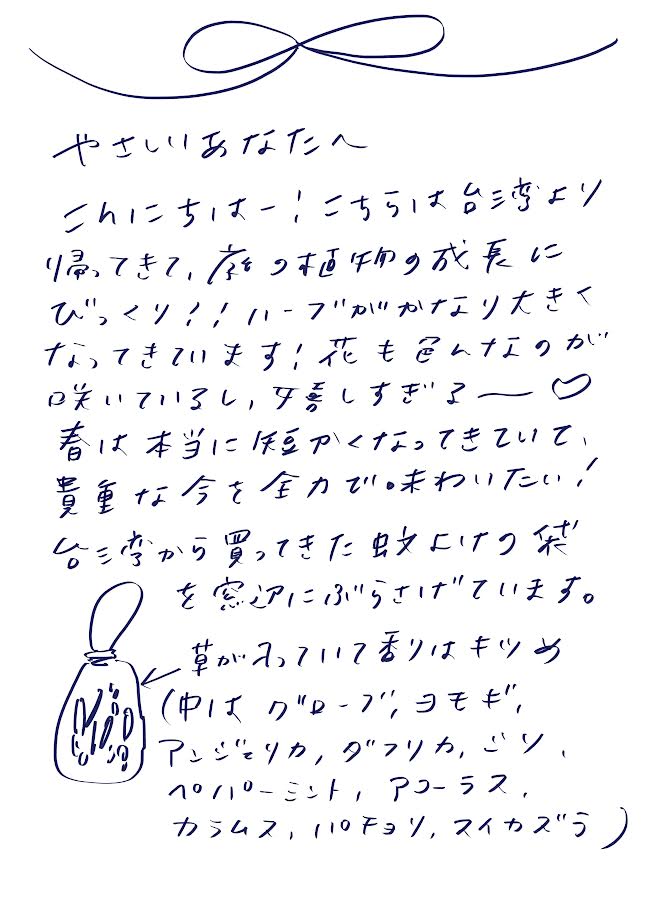 やさしいあなたへ
こんにちはー!こちらは台湾より
帰ってきて、庭の植物の成長に
びっくり!!ハーブがかなり大きく
なってきています!花も色んなのが
咲いているし、嬉しすぎる〜♡
春は本当に短かくなってきていて、
貴重な今を全力で味わいたい!
台湾から買ってきた蚊よけの袋
を窓辺にぶらさげています。
草が入っていて香りはキツめ
(中はグローブ、ヨモギ、
アンジェリカ、ダフリカ、ごソ、
ペパーミント、アコーラス、
カラムス、パチョリ、スイカズラ)